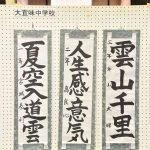 大宜味中学校
雲山千里
人生感意気
夏空入道雲